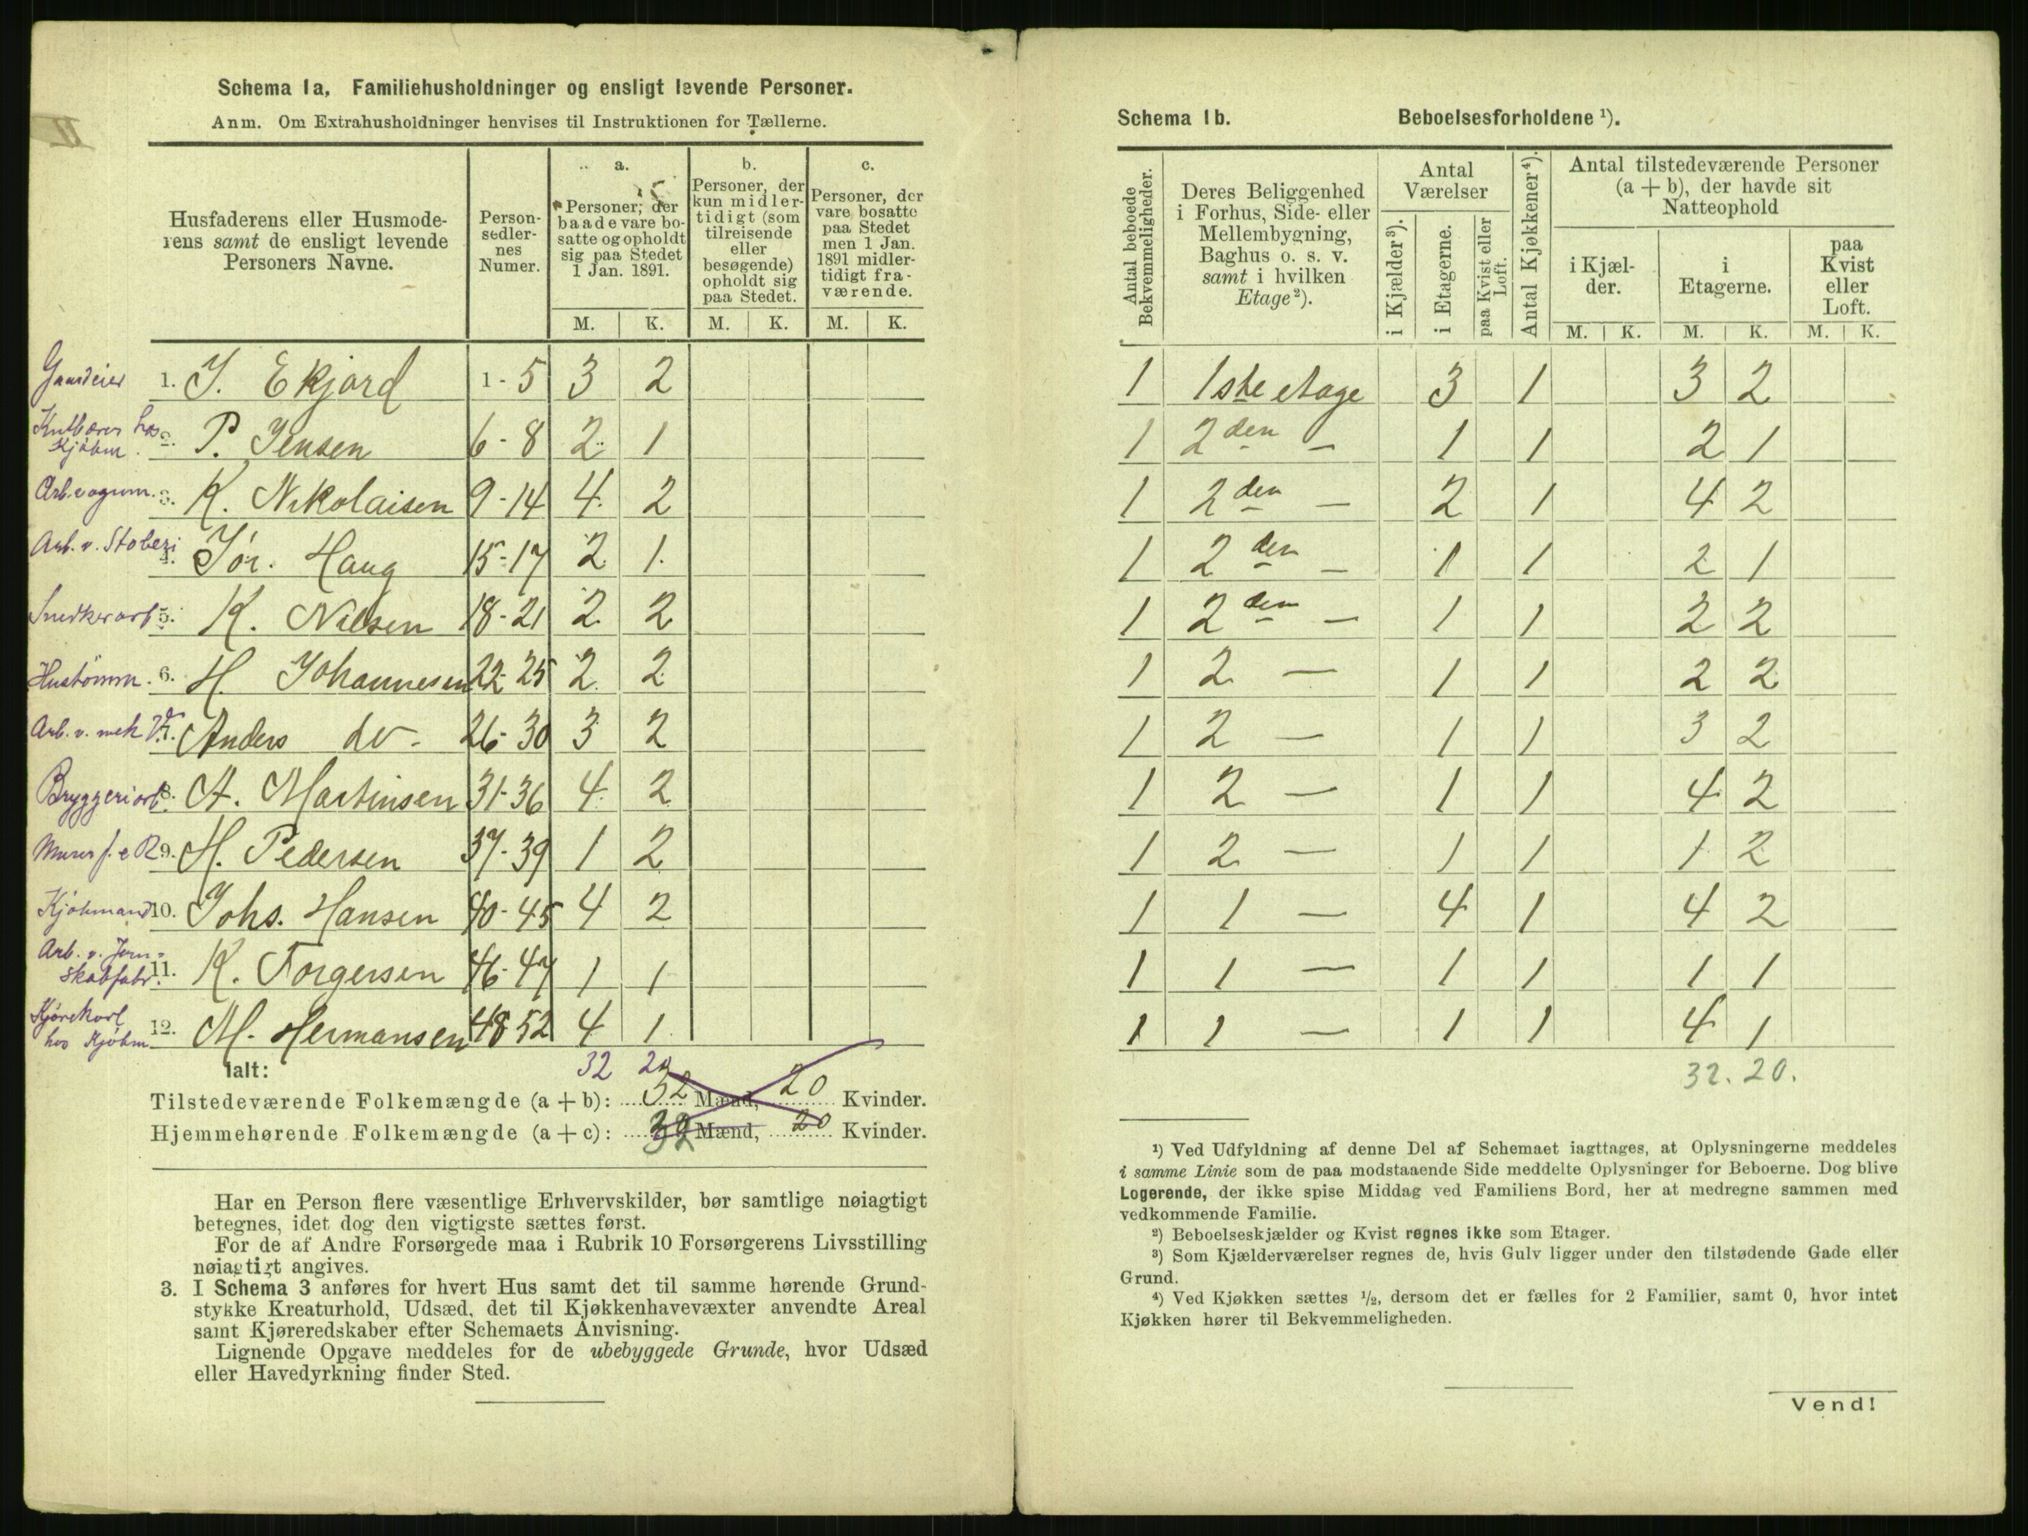 Schema 1a, Familiehusholdninger og ensligt levende Personer.
Anm. Om Extrahusholdninger henvises til Instruktionen for Tællerne.
Husfaderens eller Husmode-
rens samt de ensligt levende
Personers Navne.
Person-
sedler-
nes
Numer.
a.
Personer, der
baade vare bo-
satte og opholdt
sig paa Stedet
1 Jan. 1891.
b.
Personer, der
kun midler-
tidigt (som
tilreisende
eller
besøgende)
opholdt sig
paa Stedet.
c.
Personer, der
vare bosatte
paa Stedet
men 1 Jan.
1891 midler-
tidigt fra-
værende.
M. K. M. K. M. K.
Gaardeier 1. J. Ekjord 1 - 5 3 2
hos Kjøbm. 2. P. Jensen 6 - 8 2 1
3. K. Nikolaisen 9 - 14 4 2
Arb. v. Støberi 4. Jør. Haug 15 - 17 2 1
Snedkerarb 5. K. Nilsen 18 - 21 2 2
Hustømm. 6. H. Johannesen 22 - 25 2 2
Arb. v. mek V. 7. Anders do - 26 - 30 3 2
Bryggeriarb. 8. A. Martinsen 31 - 36 4 2
Murer f. e R 9. H. Pedersen 37 - 39 1 2
Kjøbmand 10. Johs. Hansen 40 - 45 4 2
Arb. v. Jern-
skabfabr. 11. K. Torgersen 46 - 47 1 1
Kjørekarl
hos Kjøbm 12. M. Hermansen 48 52 4 1
Ialt: 32 20
Tilstedeværende Folkemængde (a + b): 32 Mænd, 20 Kvinder.
Hjemmehørende Folkemængde (a + c): 32 Mænd, 20 Kvinder.
Har en Person flere væsentlige Erhvervskilder, bør samtlige nøiagtigt
betegnes, idet dog den vigtigste sættes først.
For de af Andre Forsørgede maa i Rubrik 10 Forsørgerens Livsstilling
nøiagtigt angives.
3. I Schema 3 anføres for hvert Hus samt det til samme hørende Grund-
stykke Kreaturhold, Udsæd, det til Kjøkkenhavevæxter anvendte Areal
samt Kjøreredskaber efter Schemaets Anvisning.
Lignende Opgave meddeles for de ubebyggede Grunde, hvor Udsæd
eller Havedyrkning finder Sted.
Schema 1b. Beboelsesforholdene ¹).
Antal beboede
Bekvemmeligheder.
Deres Beliggenhed
i Forhus, Side- eller
Mellembygning,
Baghus o. s. v.
samt i hvilken
Etage ²).
Antal
Værelser
i Kjælder ³).
i Etagerne.
paa Kvist eller
Loft.
Antal Kjøkkener ⁴).
Antal tilstedeværende Personer
(a + b), der havde sit
Natteophold
i Kjæl-
der.
i
Etagerne.
paa
Kvist
eller
Loft.
M. K. M. K. M. K.
1 1ste etage 3 1 3 2
1 2den — 1 1 2 1
1 2den — 2 1 4 2
1 2den — 1 1 2 1
1 2den — 1 1 2 2
1 2 — 1 1 2 2
1 2 — 1 1 3 2
1 2 — 1 1 4 2
1 2 — 1 1 1 2
1 1 — 4 1 4 2
1 1 — 1 1 1 1
1 1 — 1 1 4 1
32. 20.
¹) Ved Udfyldning af denne Del af Schemaet iagttages, at Oplysningerne meddeles
i samme Linie som de paa modstaaende Side meddelte Oplysninger for Beboerne. Dog blive
Logerende, der ikke spise Middag ved Familiens Bord, her at medregne sammen med
vedkommende Familie.
²) Beboelseskjælder og Kvist regnes ikke som Etager.
³) Som Kjælderværelser regnes de, hvis Gulv ligger under den tilstødende Gade eller
Grund.
⁴) Ved Kjøkken sættes ½, dersom det er fælles for 2 Familier, samt 0, hvor intet
Kjøkken hører til Bekvemmeligheden.
Vend!